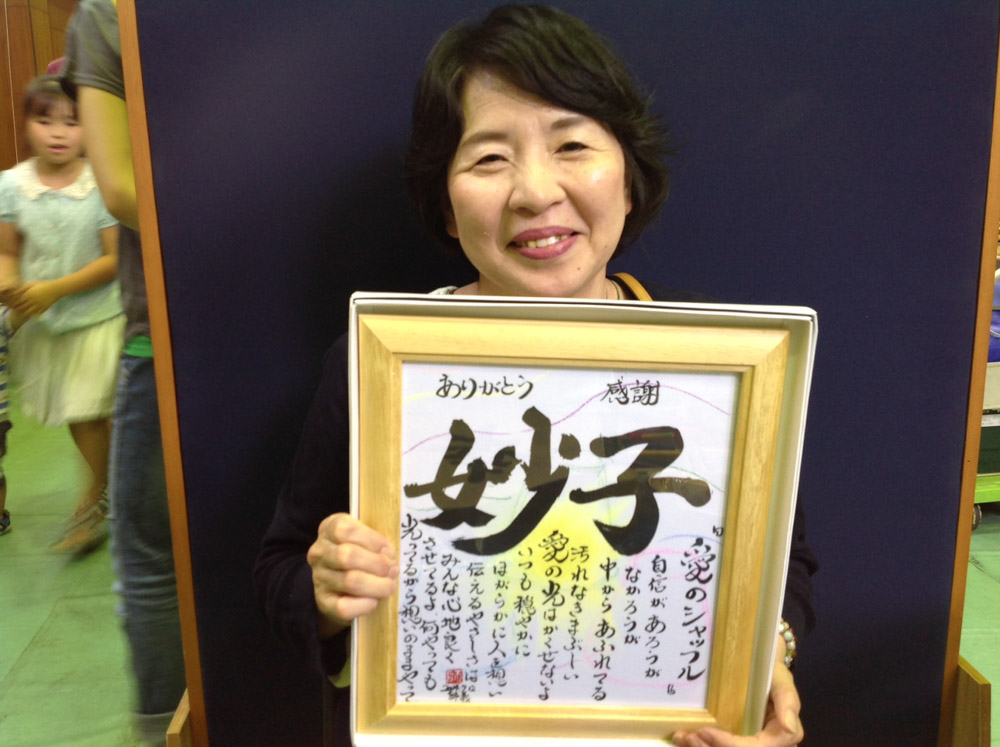 ありがとう
感謝
妙子
『愛のシャッフル』
自信があろうが
なかろうが
中からあふれてる
汚れなきまぶしい
愛の光はかくせないよ
いつも穏やかに
ほがらかに人を想い
伝えるやさしさは
みんな心地良く
させてるよ何やっても
光ってるから想いのままやって